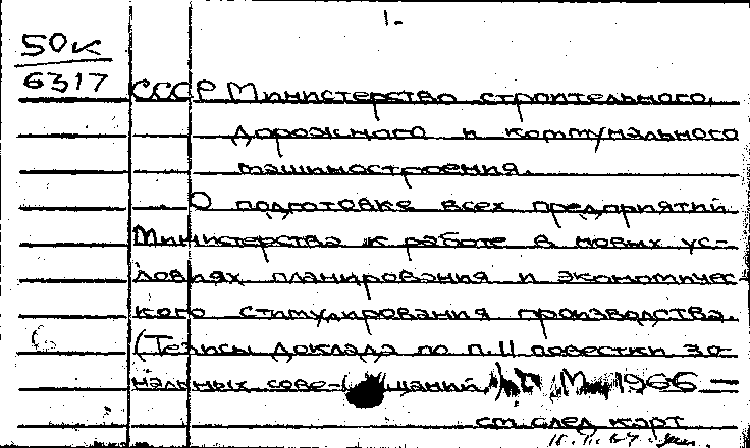 1-
50к
6317
СССР Министерство строительного,
дорожного и коммунального
машиностроения.
О подготовке всех предприятий
Министерства к работе в новых ус-
ловиях планирования и экономичес-
кого стимулирования производства.
(Тезисы доклада по п. II повестки зо-
нальных сове- щаний) М 1966 —
см след карт